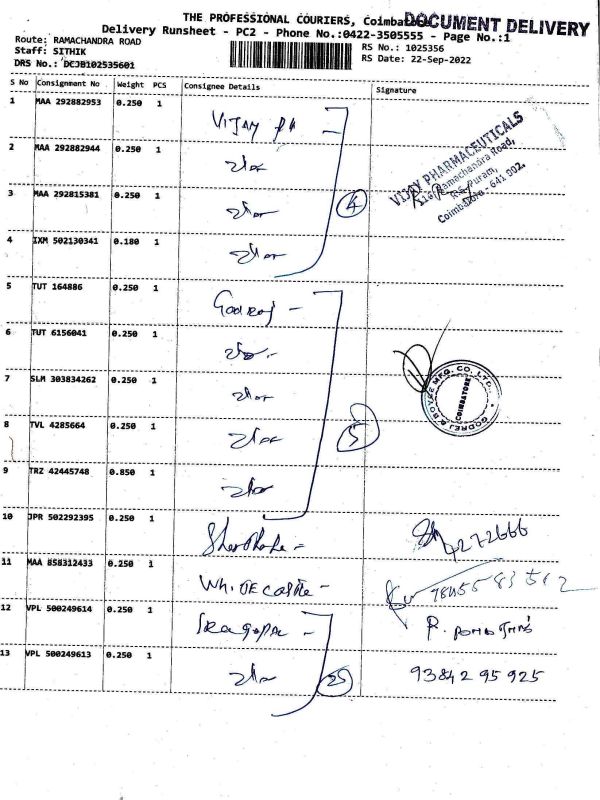 THE PROFESSIONAL COURIERS, Coimbatore
DOCUMENT DELIVERY
Delivery Runsheet - PC2 - Phone No.:0422-3505555 - Page No.:1
Route: RAMACHANDRA ROAD
RS No.: 1025356
Staff: SITHIK
RS Date: 22-Sep-2022
DRS No.: DCJB102535601
S No Consignment No Weight PCS Consignee Details Signature
1 MAA 292882953 0.250 1 VIJAY PH
2 MAA 292882944 0.250 1
VIJAY PHARMACEUTICALS
Ramachandra Road,
R.S. Puram,
Coimbatore - 641 002.
3 MAA 292815381 0.250 1
4
4 IXM 502130341 0.180 1
5 TUT 164886 0.250 1 Godrej
6 TUT 6156041 0.250 1
7 SLM 303834262 0.250 1
GODREJ & BOYCE MFG. CO. LTD.
COIMBATORE
8 TVL 4285664 0.250 1
5
9 TRZ 42445748 0.850 1
10 JPR 502292395 0.250 1 4272666
11 MAA 858312433 0.250 1 WhITE CaStle
12 VPL 500249614 0.250 1
13 VPL 500249613 0.250 1 93842 95 925